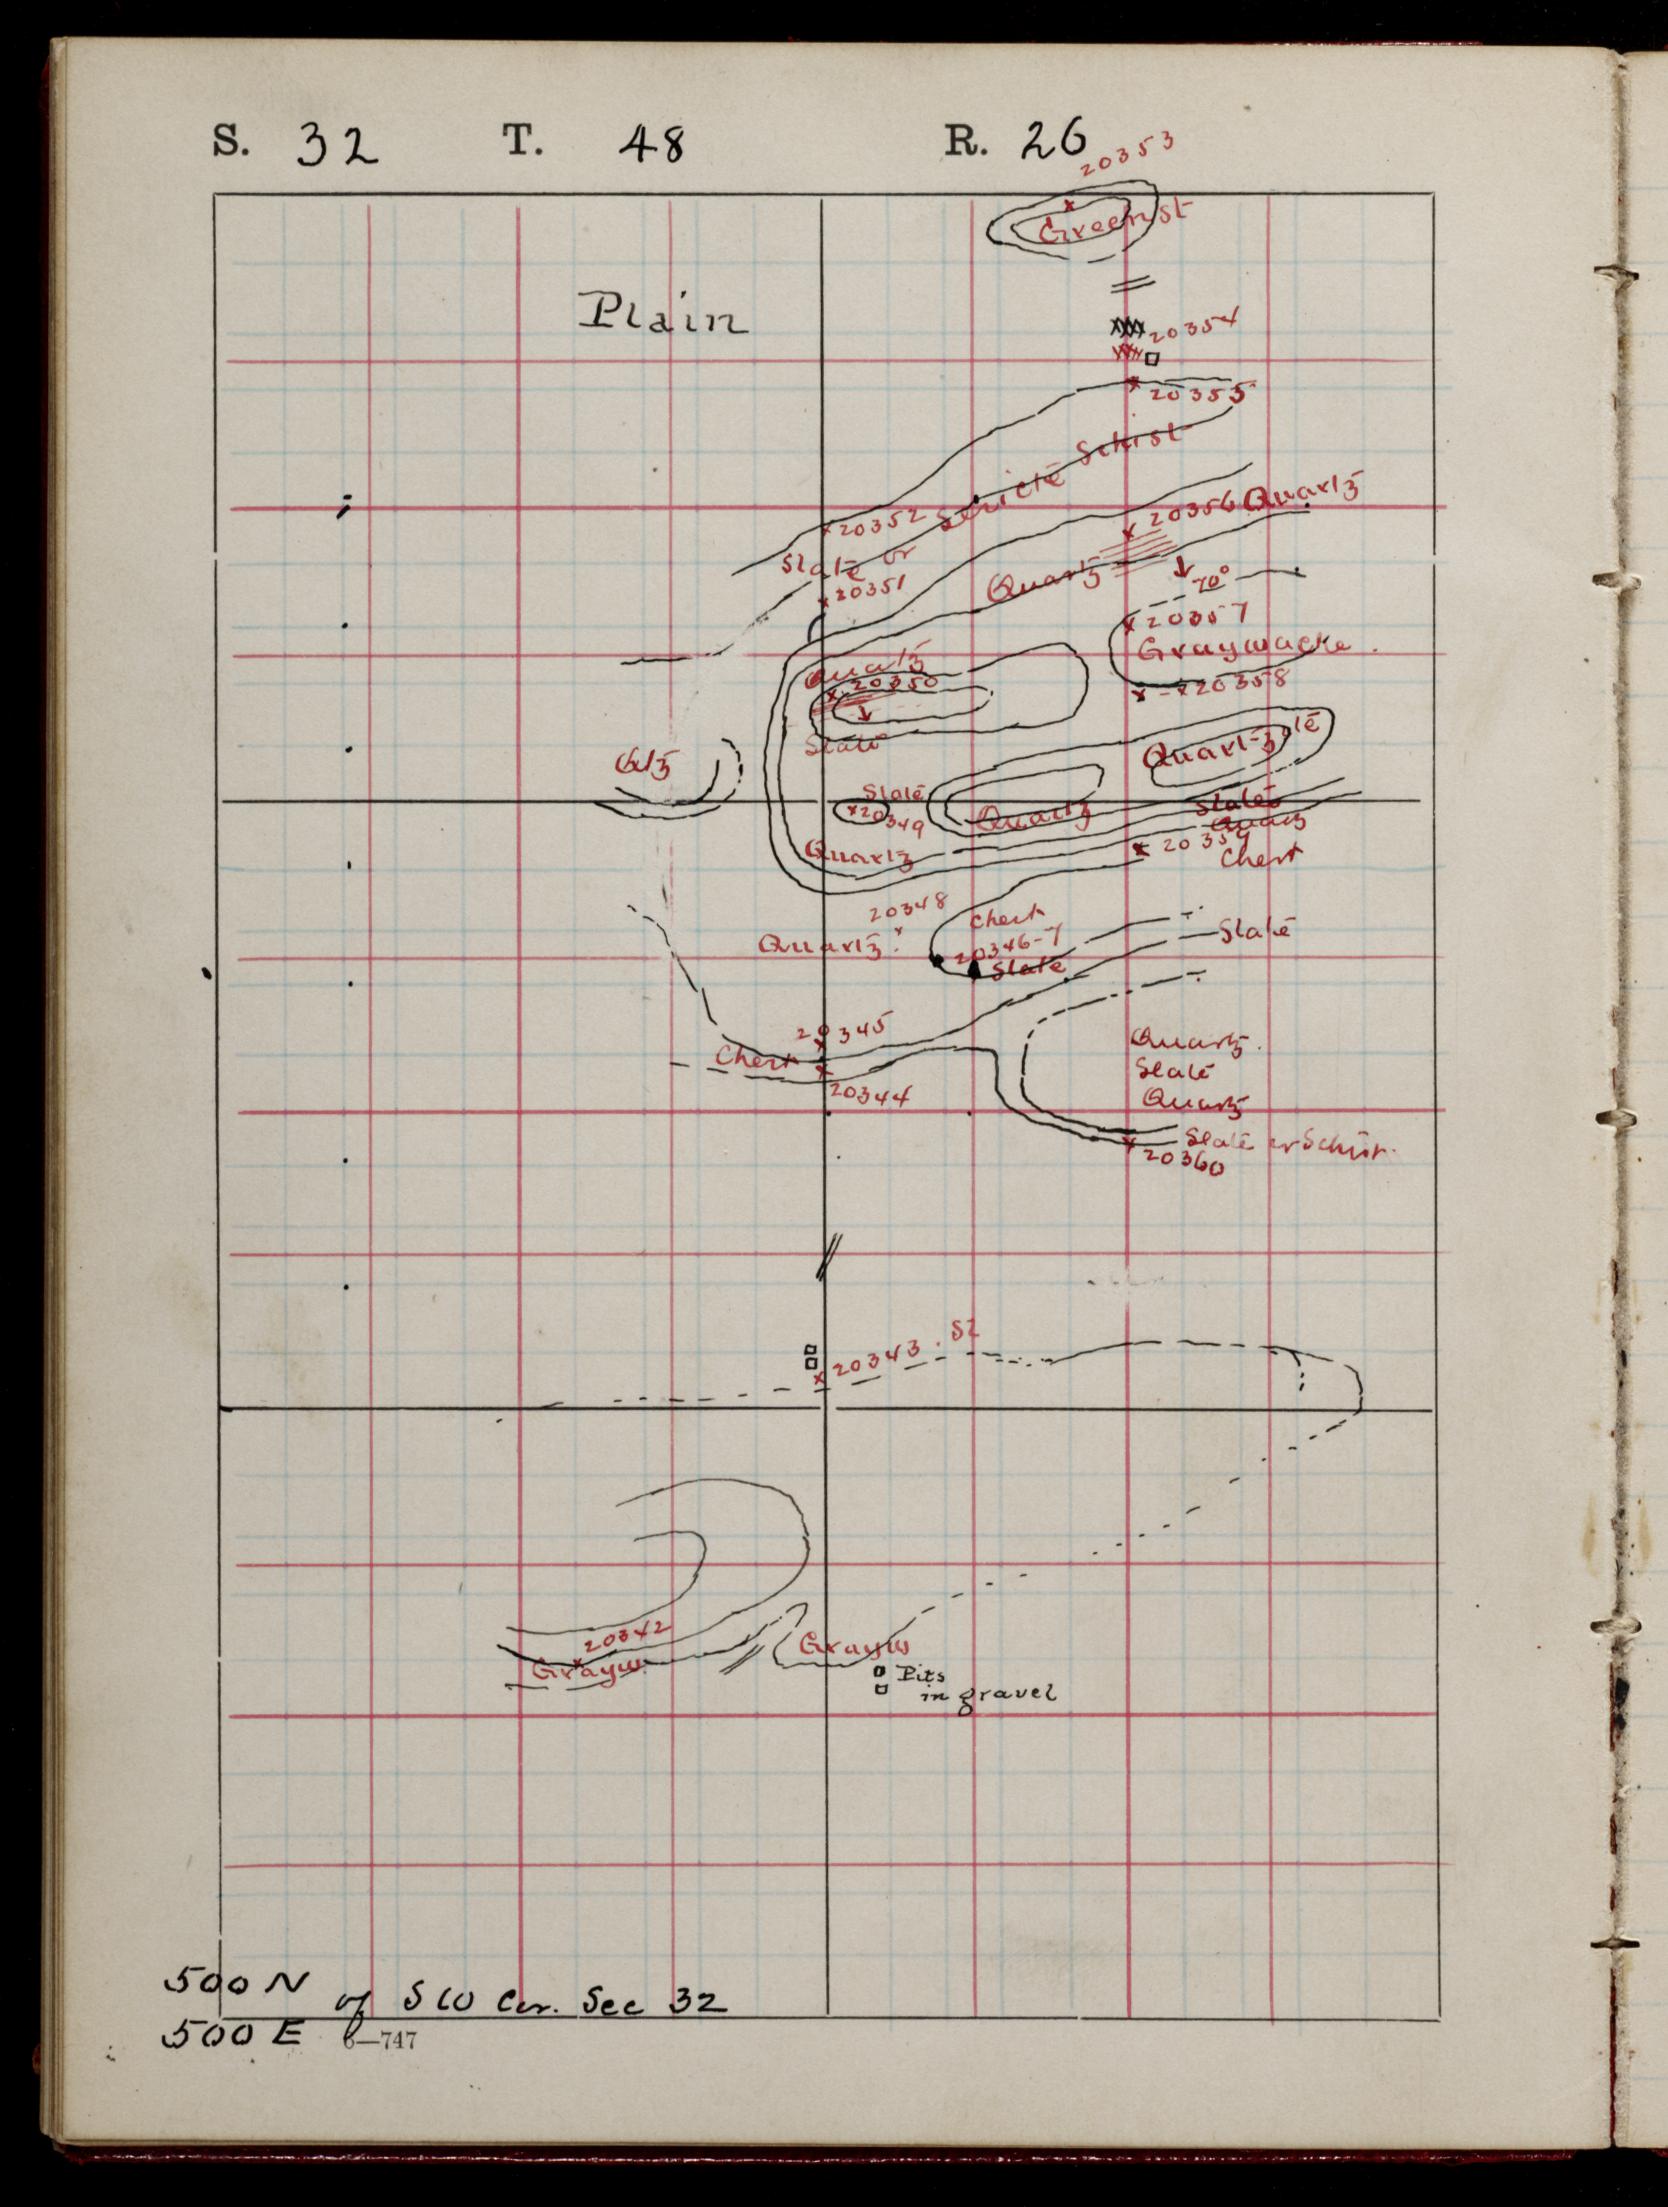 S. 32 T. 48 R. 26
20353
Greenst
Plain
20354
20355
Sericite Schist
20352
20356 Quartz
Slate or
20351
Quartz
70°
20357
Graywacke.
Quartz
20350
20358
Slate
Quartz
Qtz
Slate
20349
Quartz
Slate
Quartz
20359
Chert
Quartz
20348
Chert
Quartz
20346-7
Slate
Slate
20345
Chert
20344
Quartz.
Slate
Quartz
Slate or Schist.
20360
20343. Sl
20342
Grayw
Grayw
Pits
in gravel
500 N
of SW Cor. Sec 32
500 E
6—747